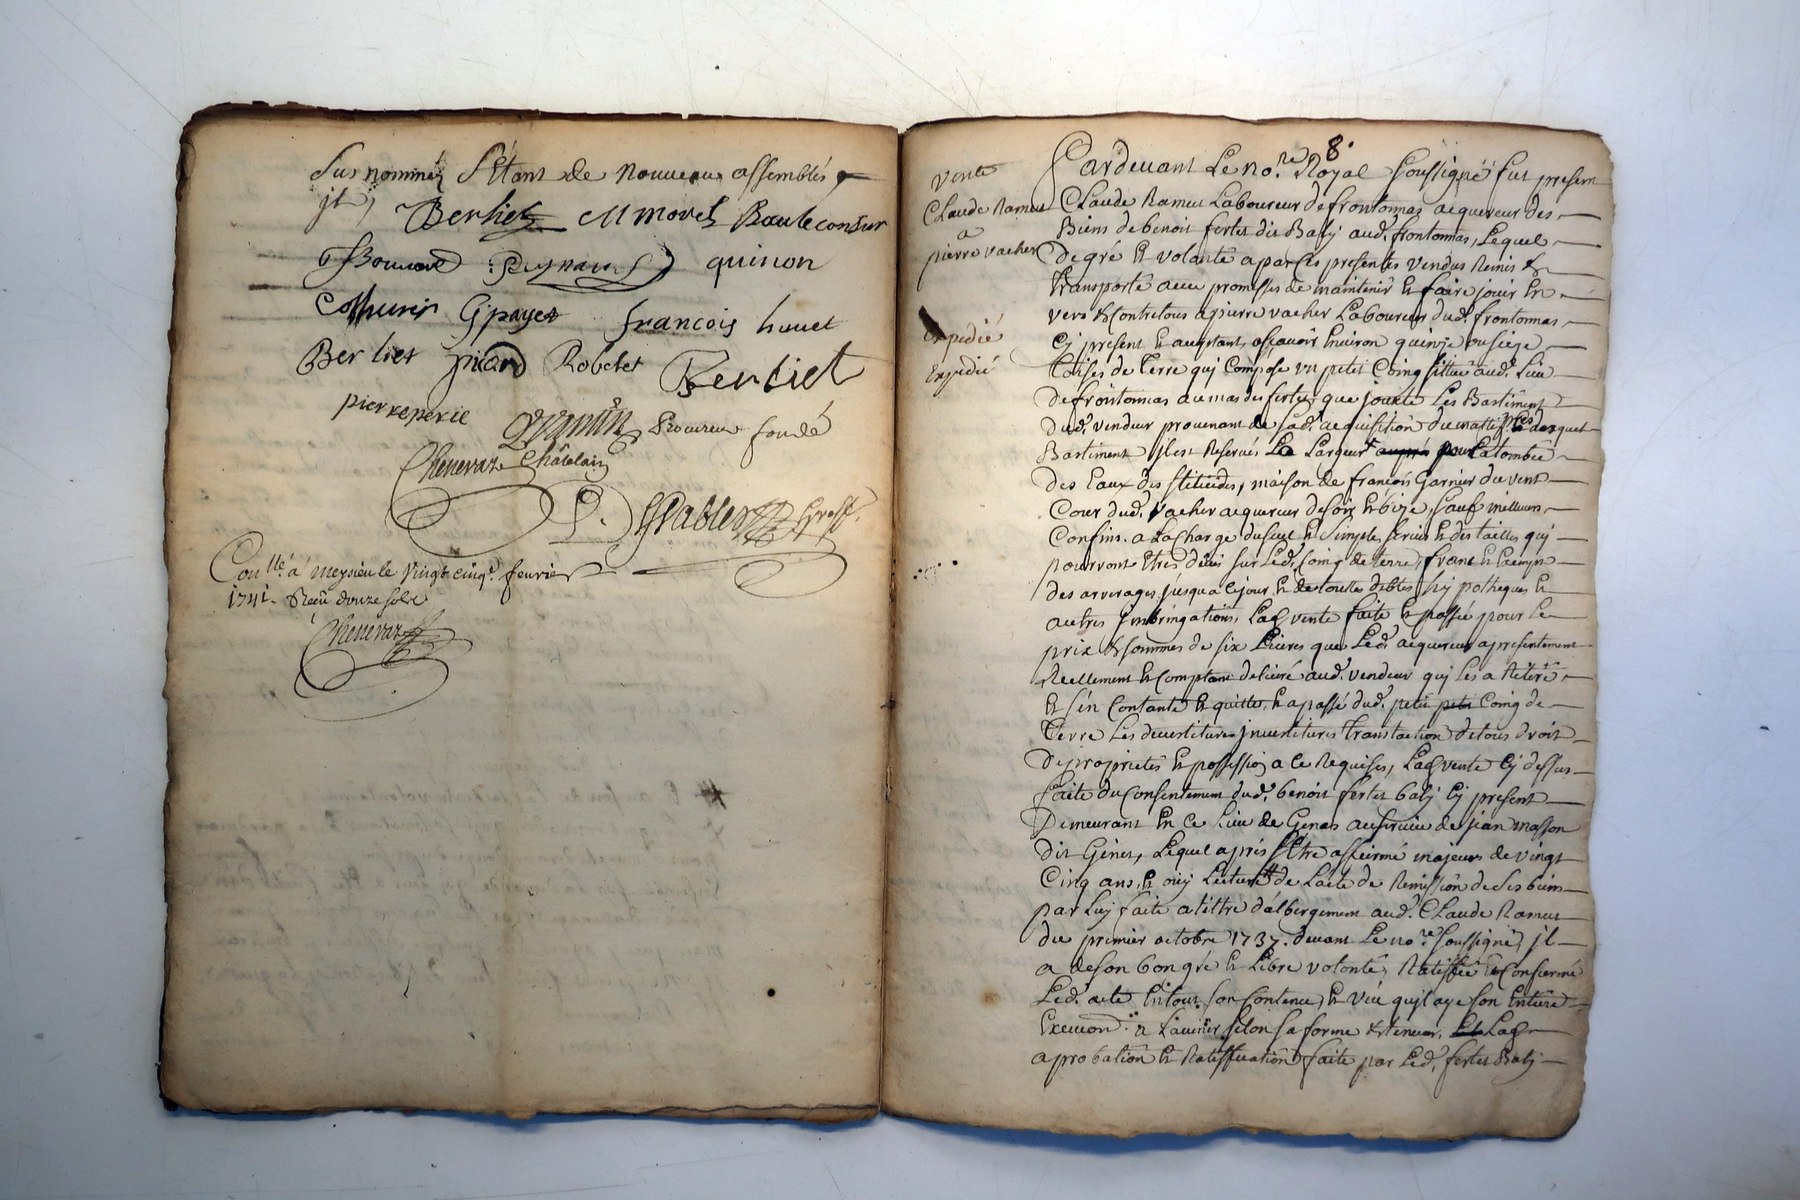 Susnommés s'étant de nouveau assemblés
Berliet Morel Baule consur
Bonnard quinon
Cothurier Gpayet francois huuet
Berliet picard Robelet Berliet
pierreperie Procureur fondé
Chenevaz Châtelain
Greff.
Conllé a Meysieu le vingt cinqe fevrier
1741. Reçu douze sols
Chenevaz
8.
vente
Claude Ramut
a
pierre vacher
Expedié
Expedié
Pardevant Le nore Royal soussigné fut present
Claude Ramut Laboureur de frontonnas acquereur des
Biens de benoit fertet dit Balj aud. frontonnas, Lequel
De gré et volonté a par ces presentes vendus Remis et
transporté avec promesses de maintenir et faire jouir en
vers et Contre tous a pierre vacher Laboureur dud. frontonnas
Cy present et aceptant, asçavoir Environ quinze ou seize
toises de Terre qui Compose un petit Coing sittué aud. Lieu
de frontonnas au mas des fertet que jouxte Les Bastiment
dud. vendeur provenant de sad. acquisition du matin
Bastiment il est Reservés La Largeur pour La tombée
des Eaux des stilicides, maison de francois Garnier du vent
Cour dud. vacher acquereur de soir et bize, sauf meilleurs
Confins. a La charge du suel et simple servis et des tailles qui
pourront êtres dües sur Led. Coing de terre, franc et Exempt
des arrerages jusqua ce jour et de toutes debtes hypotheques et
autres Imbrigations, Lad. vente faite et passée pour Le
prix et sommes de six Livres que Led. acquereur a presentement
Reellement et Comptant delivré aud. vendeur qui Les a Retiré
et s'en Contante et quitte, et a passé dud. petit petit Coing de
Terre Les devestitures investitures translation de tous droit
De proprietés et possession a ce Requises, Lad. vente Cy dessus
faite du Consentement dud. benoit fertet balj Cy present
Demeurant En ce Lieu de Genas au service de jean masson
dit Génet, Lequel après s'être affirmé majeurs de vingt
Cinq ans, et oüy Lecture de L'acte de Remission de ses biens
par Luy faite a tittre d'albergement aud. Claude Ramut
du premier octobre 1737. devant Le nore soussigné, il
a de son bon gré et Libre volonté, Ratiffié et Confirmé
Led. acte En tout son Contenu, et veu qu'il aye son Entiere
Execuon a L'avenir selon sa forme et teneur. Lad.
aprobation et Ratiffication faite par Led. fertet Balj